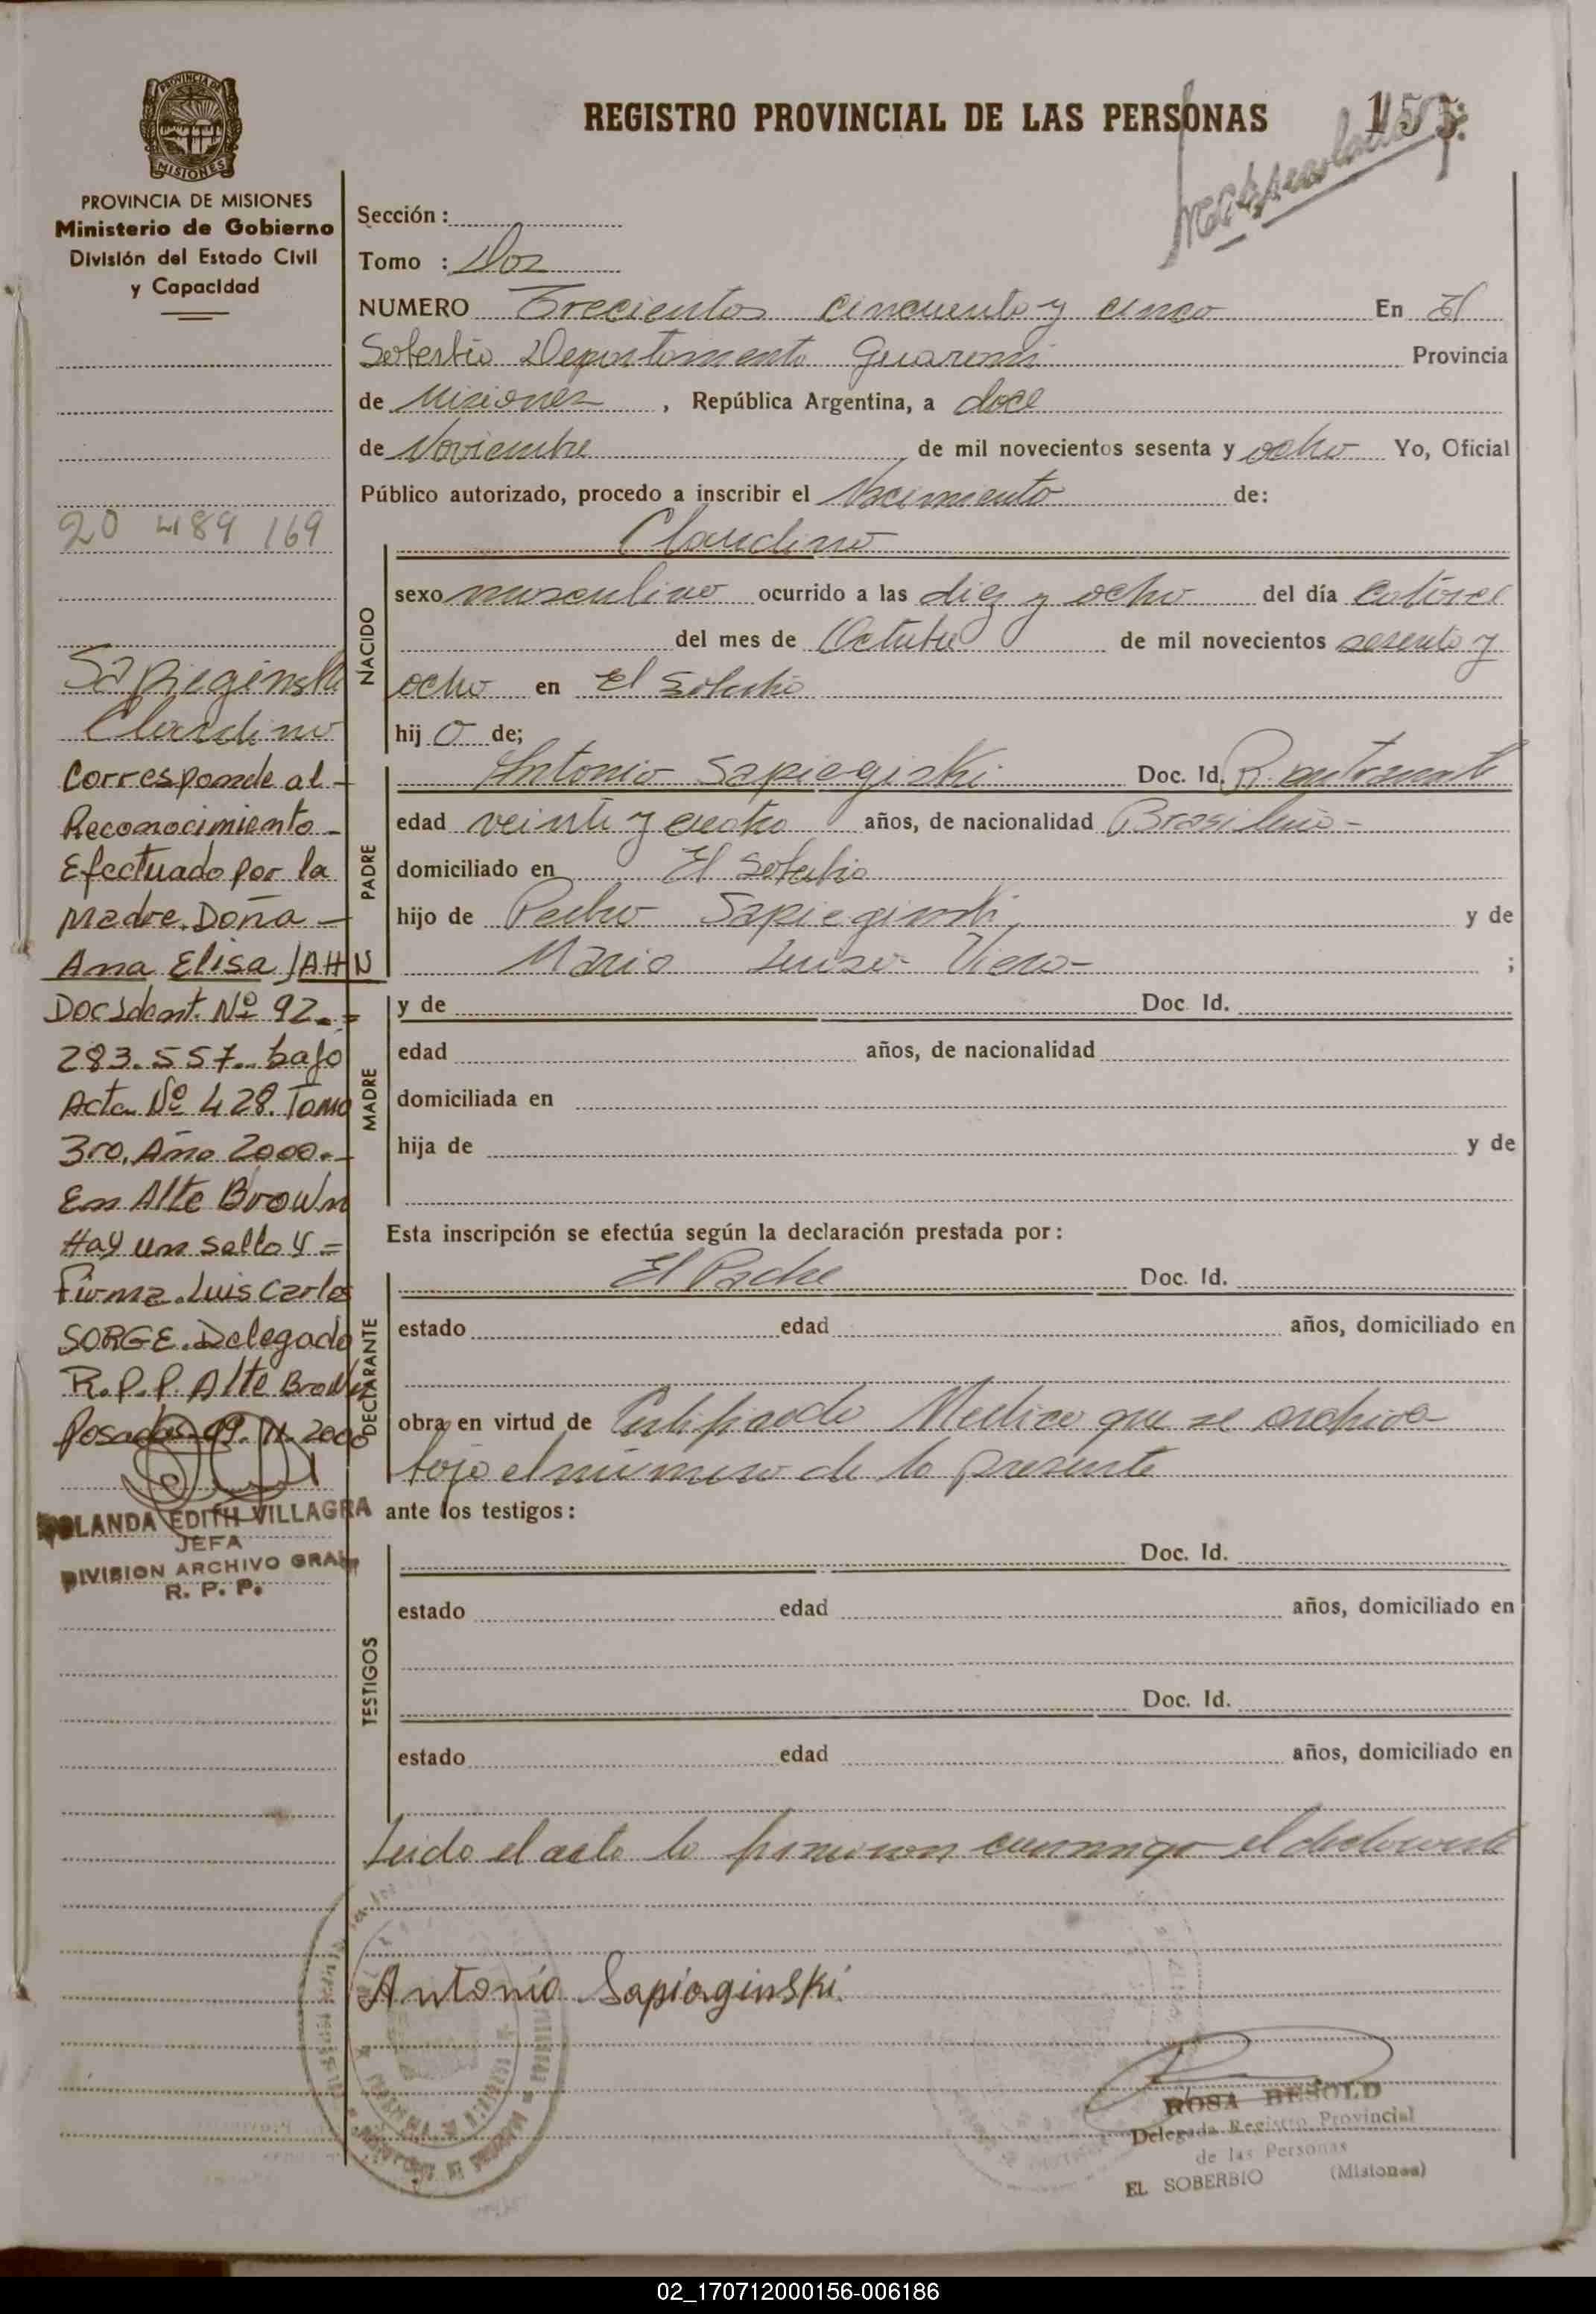 REGISTRO PROVINCIAL DE LAS PERSONAS
155
PROVINCIA DE MISIONES
PROVINCIA DE MISIONES
Ministerio de Gobierno
División del Estado Civil
y Capacidad
20 489 169
Sapieginski
Claudino
Corresponde al -
Reconocimiento -
Efectuado por la
Madre. Doña -
Ana Elisa JAHN
Doc Ident. Nº 92. =
283.557.. bajo
Acta Nº 428. Tomo
3ro. Año 2000.-
En Alte Brown
Hay un sello y =
Firma. Luis Carlos
SORGE. Delegado
R.P.P. Alte Brown
Posadas 09.11.2000
YOLANDA EDITH VILLAGRA
JEFA
DIVISION ARCHIVO GRAL.
R. P. P.
Sección :
Tomo : Dos
NUMERO Trecientos cincuenta y cinco En El
Soberbio Departamento Guarani Provincia
de Misiones , República Argentina, a doce
de Noviembre de mil novecientos sesenta y ocho Yo, Oficial
Público autorizado, procedo a inscribir el Nacimiento de:
Claudino
NACIDO
sexo masculino ocurrido a las diez y ocho del día catorce
del mes de Octubre de mil novecientos sesenta y
ocho en El Soberbio
hij o de;
PADRE
Antonio Sapiegiski Doc. Id.
edad veinti y cuatro años, de nacionalidad Brasileña -
domiciliado en El Soberbio
hijo de Pedro Sapieginski y de
Maria Luisa Viera - ;
MADRE
y de Doc. Id.
edad años, de nacionalidad
domiciliada en
hija de y de
Esta inscripción se efectúa según la declaración prestada por :
DECLARANTE
El Padre Doc. Id.
estado edad años, domiciliado en
obra en virtud de Certificado Medico que se archiva
bajo el numero de la presente
ante los testigos :
TESTIGOS
Doc. Id.
estado edad años, domiciliado en
Doc. Id.
estado edad años, domiciliado en
Leida el acta la firmaron conmigo el declarante
Antonio Sapieginski
ROSA BESOLD
Delegada Registro Provincial
de las Personas
EL SOBERBIO (Misiones)
02_170712000156-006186